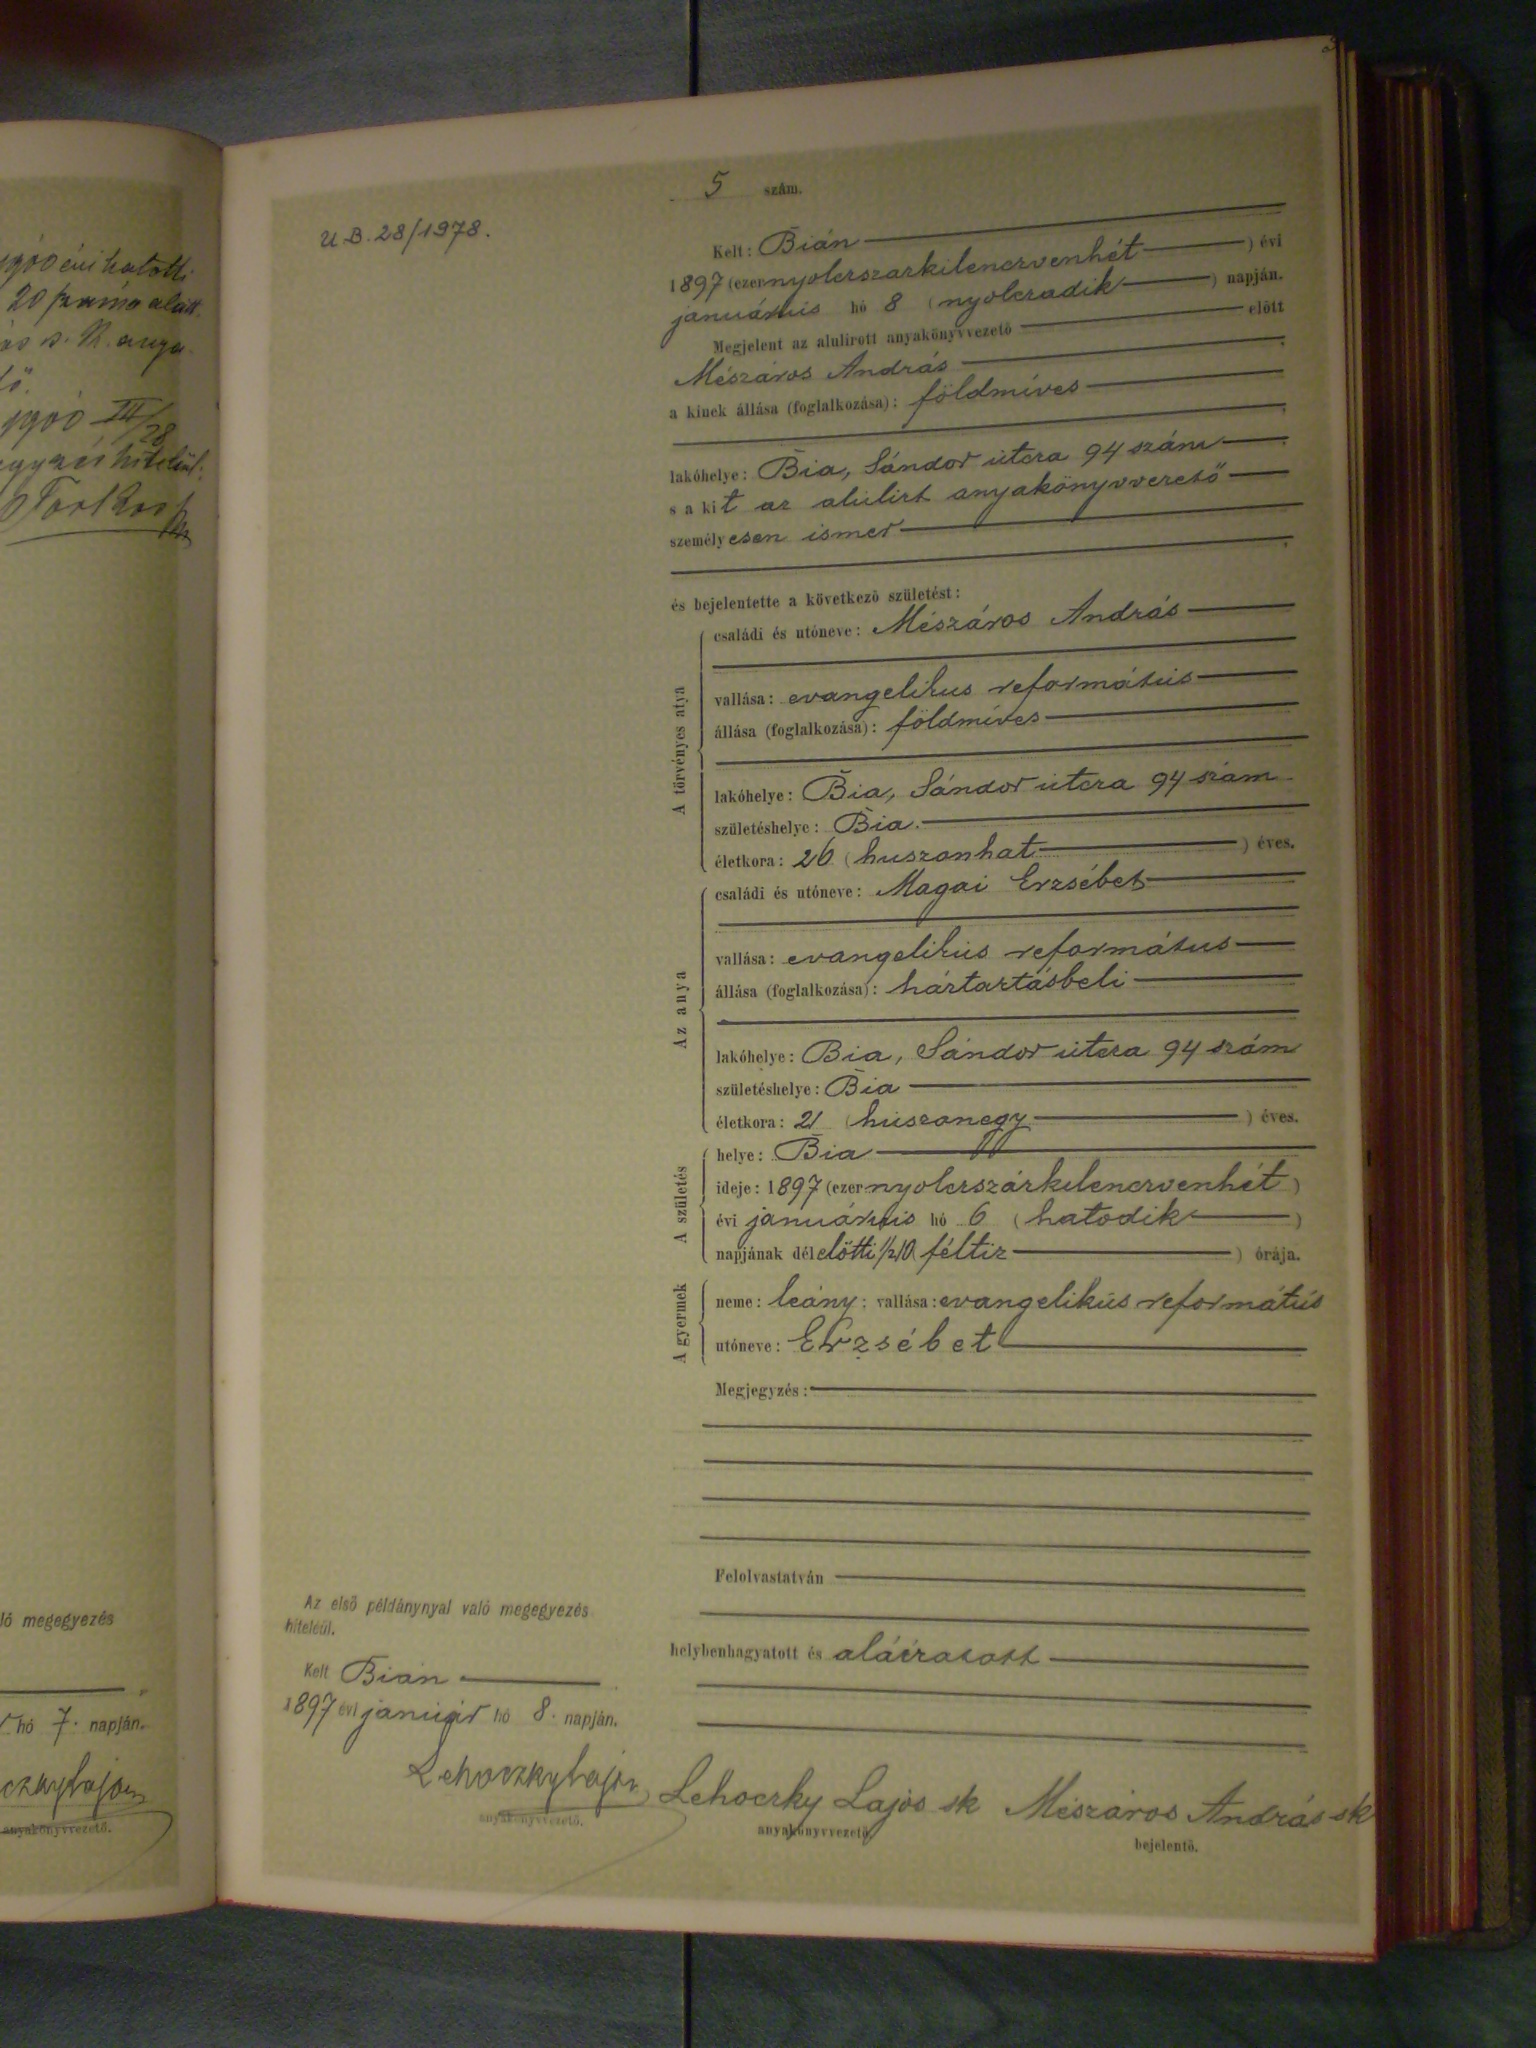 5 szám.
U.B. 28/1978.
Kelt: Bián
1897 (ezernyolczszázkilenczvenhét) évi
január hó 8 (nyolczadik) napján.
Megjelent az alulirott anyakönyvvezető előtt
Mészáros András
a kinek állása (foglalkozása): földmíves
lakóhelye: Bia, Sándor utcza 94 szám
s a kit az alulirt anyakönyvvezető
személyesen ismer
és bejelentette a következő születést:
A törvényes atya
családi és utóneve: Mészáros András
vallása: evangelikus református
állása (foglalkozása): földmíves
lakóhelye: Bia, Sándor utcza 94 szám
születéshelye: Bia.
életkora: 26 (huszonhat) éves.
Az anya
családi és utóneve: Magai Erzsébet
vallása: evangelikus református
állása (foglalkozása): háztartásbeli
lakóhelye: Bia, Sándor utcza 94 szám
születéshelye: Bia
életkora: 21 (huszonegy) éves.
A születés
helye: Bia
ideje: 1897 (ezernyolczszázkilenczvenhét)
évi január hó 6 (hatodik)
napjának délelőtti 1/210 féltiz) órája.
A gyermek
neme: leány; vallása: evangelikus református
utóneve: Erzsébet
Megjegyzés:
Felolvastatván
helybenhagyatott és aláiratott
Az első példánynyal való megegyezés
hiteléül.
Kelt Bián
1897 évi január hó 8. napján.
Lehoczky Lajos
anyakönyvvezető.
Lehoczky Lajos sk Mészáros András sk
anyakönyvvezető bejelentő.
20 száma alatt
ló megegyezés
hó 7. napján.
czky Lajos
anyakönyvvezető.